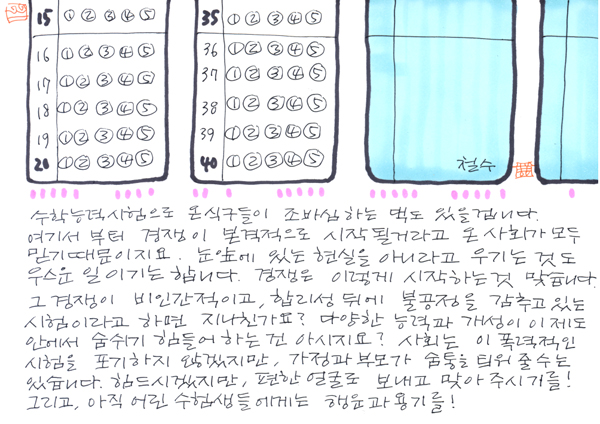 15 ① ② ③ ④ ⑤ 35 ① ② ③ ④ ⑤
16 ① ② ③ ④ ⑤ 36 ① ② ③ ④ ⑤
17 ① ② ③ ④ ⑤ 37 ① ② ③ ④ ⑤
18 ① ② ③ ④ ⑤ 38 ① ② ③ ④ ⑤
19 ① ② ③ ④ ⑤ 39 ① ② ③ ④ ⑤
20 ① ② ③ ④ ⑤ 40 ① ② ③ ④ ⑤ 철수
수학능력시험으로 온식구들이 조바심하는 댁도 있을겁니다.
여기서 부터 경쟁이 본격적으로 시작될거라고 온 사회가 모두
믿기때문이지요. 눈앞에 있는 현실을 아니라고 우기는 것도
우스운 일이기는 합니다. 경쟁은 이렇게 시작하는것 맞습니다.
그 경쟁이 비인간적이고, 합리성 뒤에 불공정을 감추고 있는
시험이라고 하면 지나친가요? 다양한 능력과 개성이 이 제도
안에서 숨쉬기 힘들어 하는건 아시지요? 사회는 이 폭력적인
시험을 포기하지 않겠지만, 가정과 부모가 숨통을 틔워 줄수는
있습니다. 힘드시겠지만, 편한 얼굴로 보내고 맞아 주시기를!
그리고, 아직 어린 수험생들에게는 행운과 용기를!